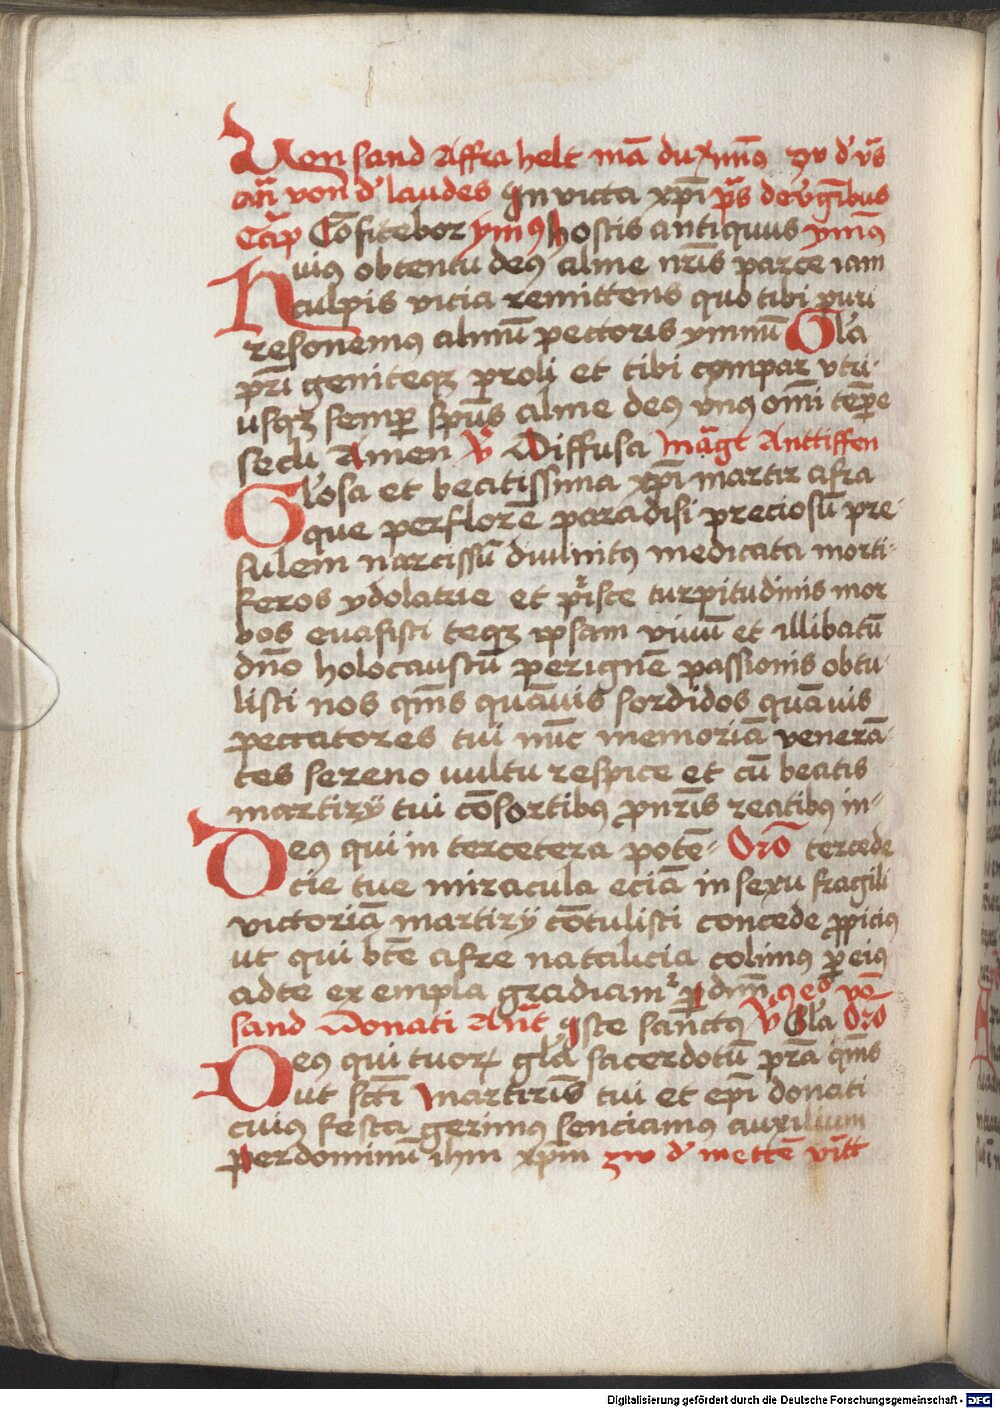 Von sand Affra helt mā du xij miās zw d' vs
ātī von d' laudes Inuicta xp̄i ps̄ de v̓gībus
Cap̄ Cōfitebor ymꝯ hostis antiquus ymꝯ
huiꝯ obtentu deꝯ alme nr̄is parce iam
culpis vicia remittens quo tibi puri
resonemꝯ almū pectoris ymnū Gl̓a
pr̄i geniteqꝫ ꝓroli et tibi compar vtri-
usqꝫ semꝑ sp̄us alme deꝯ vnꝯ om̄i tēꝑe
secli Amen v̓ Diffusa māgt Anttiffen
Gl̓osa et beatissima xp̄i martir afra
que perflorē paradisi preciosū pre-
sulem narcissū diuinitꝯ medicata morti-
feros ydolatrie et pͥsce turpitudinis mor
bos euasisti teqꝫ ipsam viuū et illibatū
dn̄o holocaustū per ignē passionis obtu-
listi nos qm̄s quāuis sordidos quāuis
peccatores tui nūc memoriā venerā-
tes sereno uultu respice et cū beatis
martirÿ tui cōsortibꝯ ꝓ nr̄is reatibꝯ in-
Deꝯ qui in tercetera potē- Oro̅ tercede
cie tue miracula eciā in sexu fragili
victoriā martirÿ cōtulisti concede ꝓpicius
ut qui bt̄e afre natalicia colimꝯ ꝑ eiꝯ
ad te exempla gradiam̓ ꝑ dn̄m ꝯ eꝯ vō
sand Donati An̄t Iste sanctꝯ v̓ Gl̓a Oro̅
Deꝯ qui tuoꝝ gl̓a sacerdotū pr̄a qm̄s
ut sc̄ti martiris tui et ep̄i donati
cuiꝯ festa gerimꝯ senciamꝯ auxilium
Per dominū ihm xp̄m zw d' mettē vitt
Digitalisierung gefördert durch die Deutsche Forschungsgemeinschaft - DFG